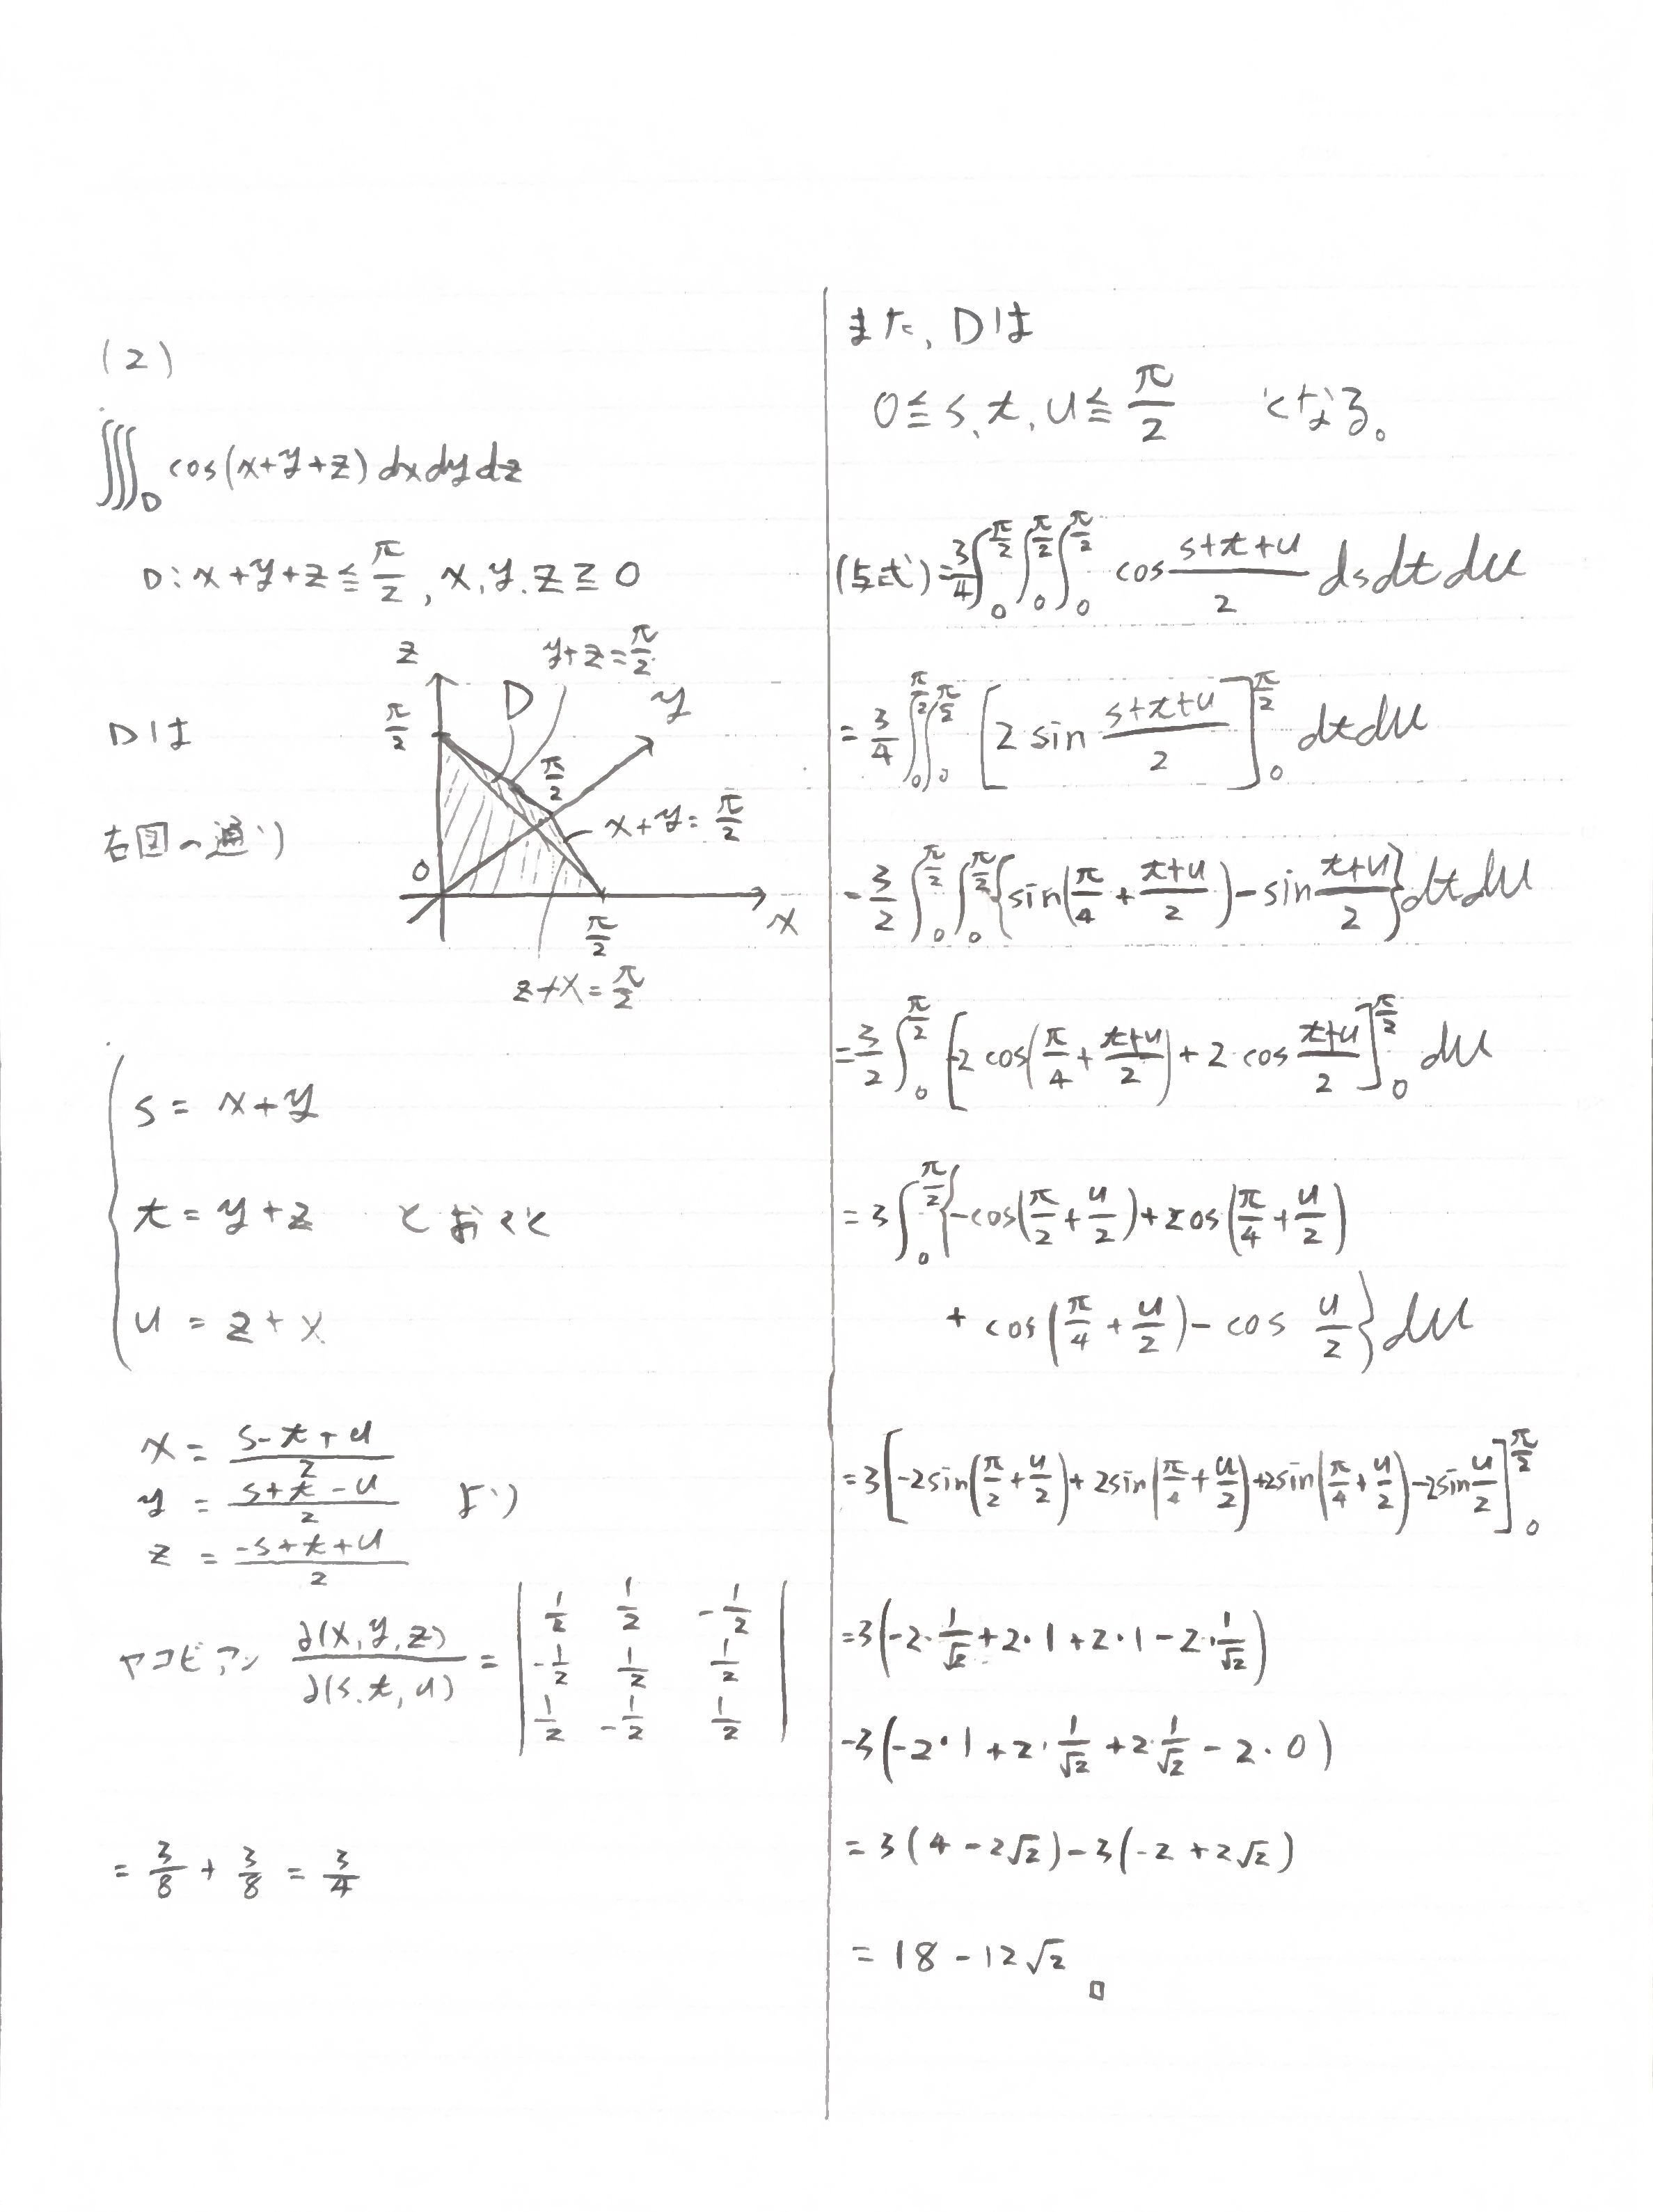 (2)
∭_D cos(x+y+z) dxdydz
D: x+y+z ≦ π/2, x, y, z ≧ 0
Dは
右図の通り
z
y+z=π/2
D
y
π/2
π/2
x+y=π/2
0
x
π/2
z+x=π/2
s = x+y
t = y+z とおくと
u = z+x
x = (s-t+u)/2
y = (s+t-u)/2 より
z = (-s+t+u)/2
ヤコビアン ∂(x,y,z)/∂(s,t,u) = | 1/2 1/2 -1/2 |
| -1/2 1/2 1/2 |
| 1/2 -1/2 1/2 |
= 3/8 + 3/8 = 3/4
また、Dは
0 ≦ s, t, u ≦ π/2 となる。
(与式) = 3/4 ∫_0^{π/2} ∫_0^{π/2} ∫_0^{π/2} cos (s+t+u)/2 dsdtdu
= 3/4 ∫_0^{π/2} ∫_0^{π/2} [2 sin (s+t+u)/2]_0^{π/2} dtdu
= 3/2 ∫_0^{π/2} ∫_0^{π/2} {sin(π/4 + (t+u)/2) - sin (t+u)/2} dtdu
= 3/2 ∫_0^{π/2} [-2 cos(π/4 + (t+u)/2) + 2 cos (t+u)/2]_0^{π/2} du
= 3 ∫_0^{π/2} {-cos(π/2 + u/2) + cos(π/4 + u/2)
+ cos(π/4 + u/2) - cos u/2} du
= 3 [-2sin(π/2 + u/2) + 2sin(π/4 + u/2) + 2sin(π/4 + u/2) - 2sin u/2]_0^{π/2}
= 3(-2·1/√2 + 2·1 + 2·1 - 2·1/√2)
-3(-2·1 + 2·1/√2 + 2·1/√2 - 2·0)
= 3(4 - 2√2) - 3(-2 + 2√2)
= 18 - 12√2 □